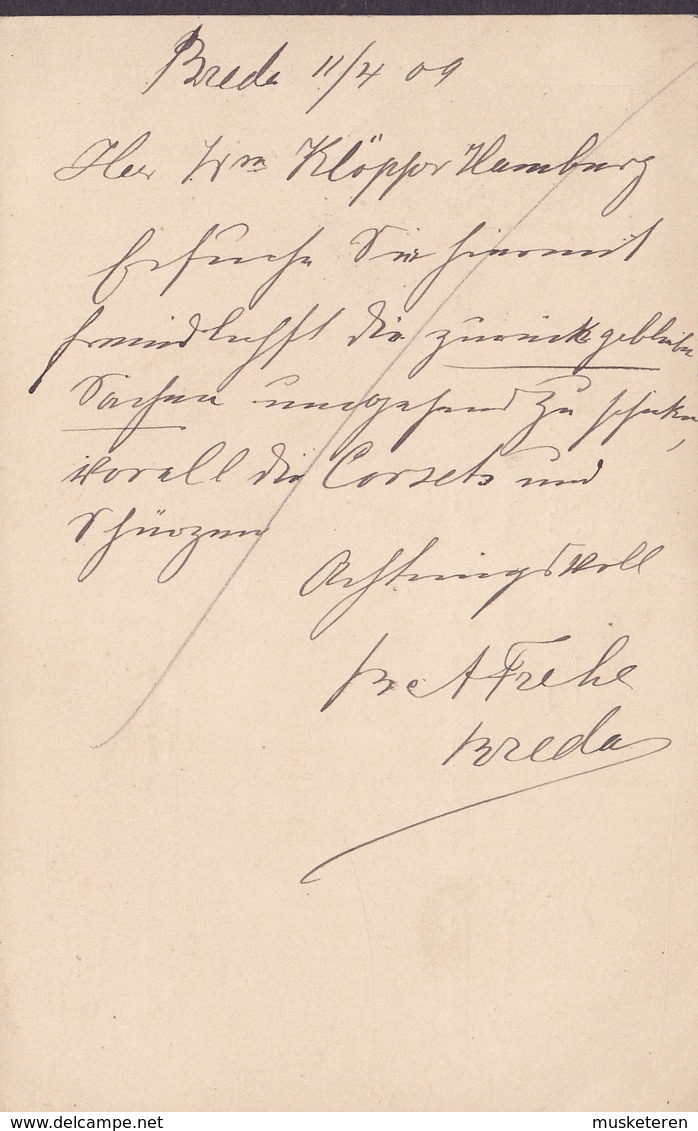 Breda 11/4 09
Herr Wm Klöpper Hamburg
Ersuche Sie hiermit
freundlichst die zurückgebliebn
Sachen umgehend zu schicken,
vorall die Corsets und
Schürzen
Achtungsvoll
A Frehe
Breda
delcampe.net
musketeren